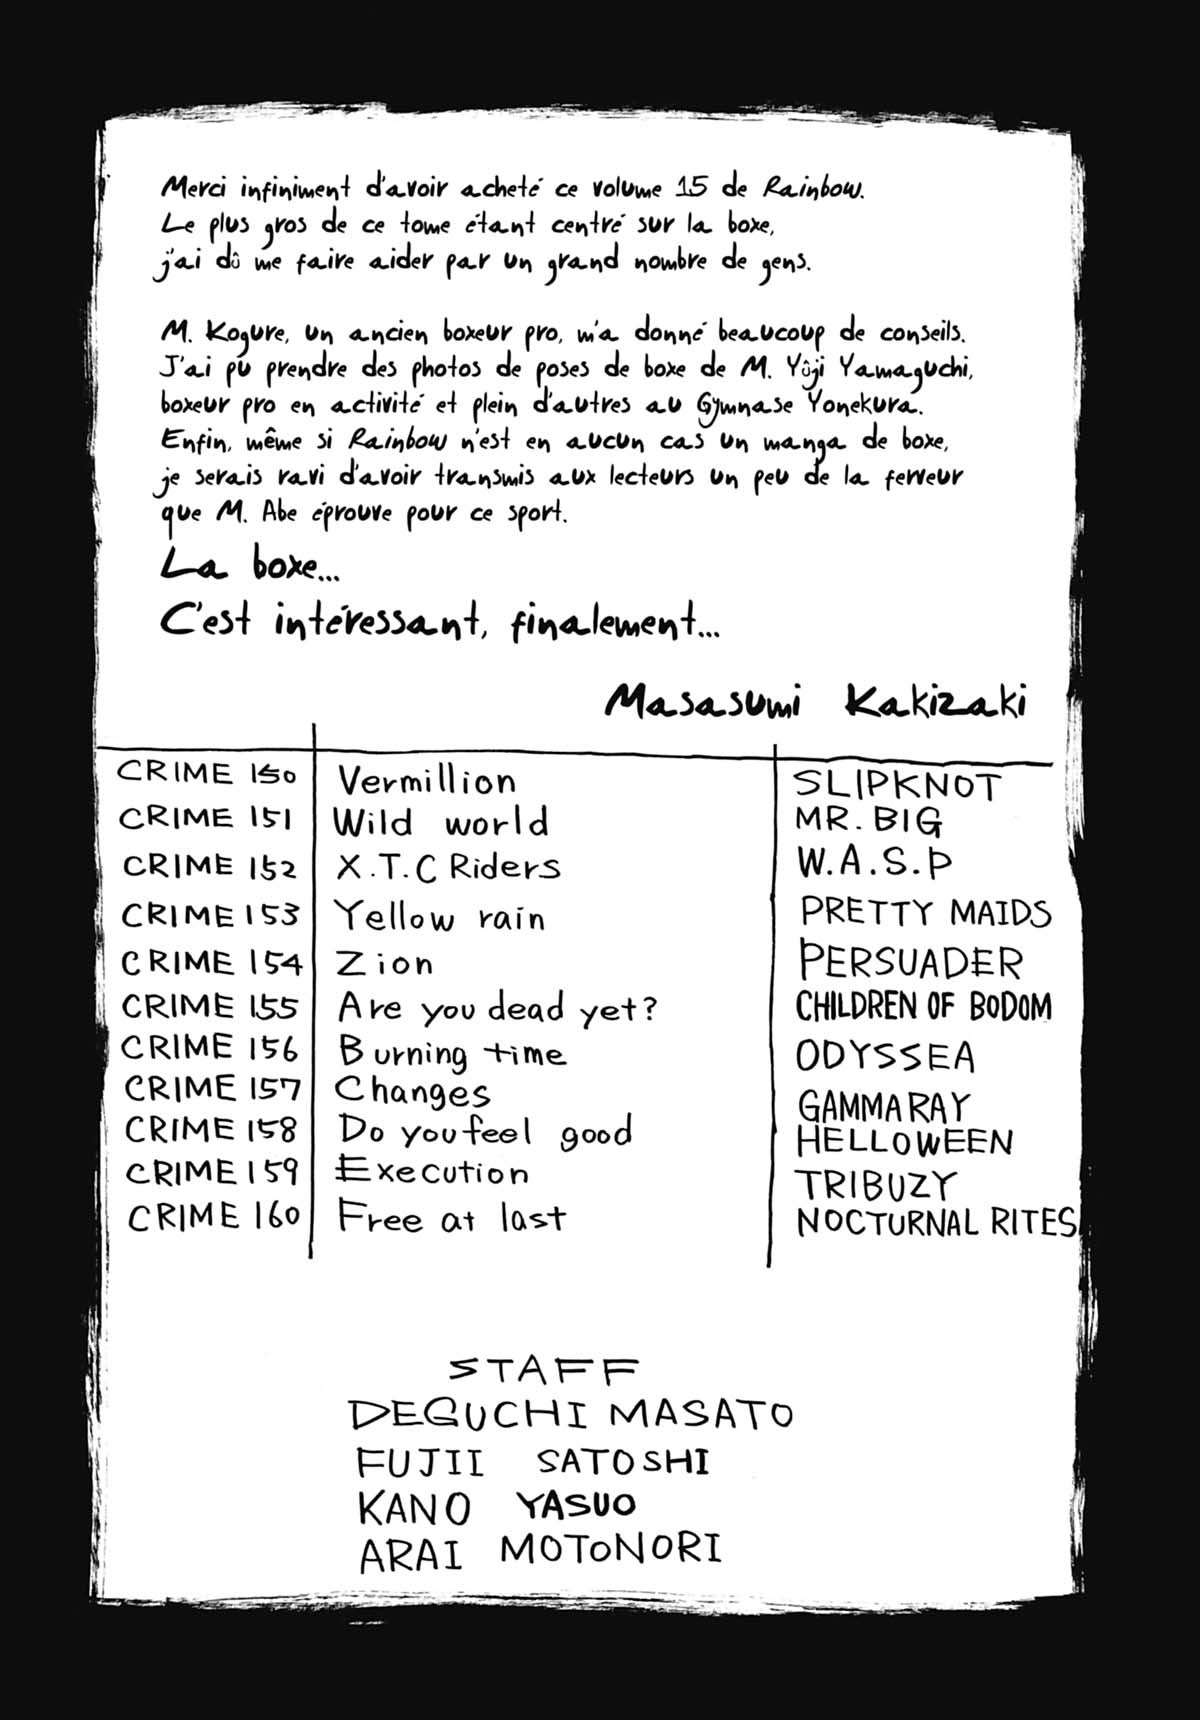 Merci infiniment d'avoir acheté ce volume 15 de Rainbow.
Le plus gros de ce tome étant centré sur la boxe,
j'ai dû me faire aider par un grand nombre de gens.
M. Kogure, un ancien boxeur pro, m'a donné beaucoup de conseils.
J'ai pu prendre des photos de poses de boxe de M. Yûji Yamaguchi,
boxeur pro en activité et plein d'autres au Gymnase Yonekura.
Enfin, même si Rainbow n'est en aucun cas un manga de boxe,
je serais ravi d'avoir transmis aux lecteurs un peu de la ferveur
que M. Abe éprouve pour ce sport.
La boxe...
C'est intéressant, finalement...
Masasumi Kakizaki
CRIME 150 Vermillion SLIPKNOT
CRIME 151 Wild world MR. BIG
CRIME 152 X.T.C Riders W.A.S.P
CRIME 153 Yellow rain PRETTY MAIDS
CRIME 154 Zion PERSUADER
CRIME 155 Are you dead yet? CHILDREN OF BODOM
CRIME 156 Burning time ODYSSEA
CRIME 157 Changes GAMMA RAY
CRIME 158 Do you feel good HELLOWEEN
CRIME 159 Execution TRIBUZY
CRIME 160 Free at last NOCTURNAL RITES
STAFF
DEGUCHI MASATO
FUJII SATOSHI
KANO YASUO
ARAI MOTONORI